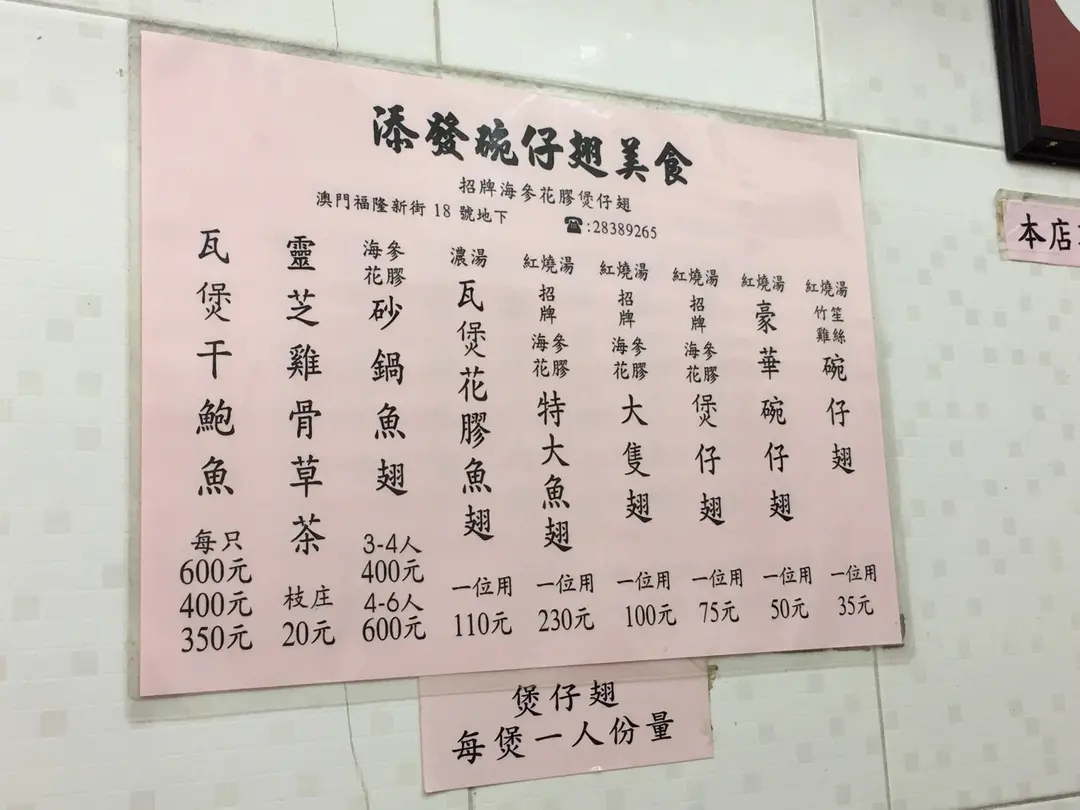 添發碗仔翅美食
招牌海參花膠煲仔翅
澳門福隆新街 18 號地下
☎:28389265
紅燒湯
竹笙
雞絲
碗仔翅
一位用
35元
紅燒湯
豪華碗仔翅
一位用
50元
紅燒湯
招牌
海參
花膠
煲仔翅
一位用
75元
紅燒湯
招牌
海參
花膠
大隻翅
一位用
100元
紅燒湯
招牌
海參
花膠
特大魚翅
一位用
230元
濃湯
瓦煲花膠魚翅
一位用
110元
海參
花膠
砂鍋魚翅
3-4人
400元
4-6人
600元
靈芝雞骨草茶
枝庄
20元
瓦煲干鮑魚
每只
600元
400元
350元
煲仔翅
每煲一人份量
本店